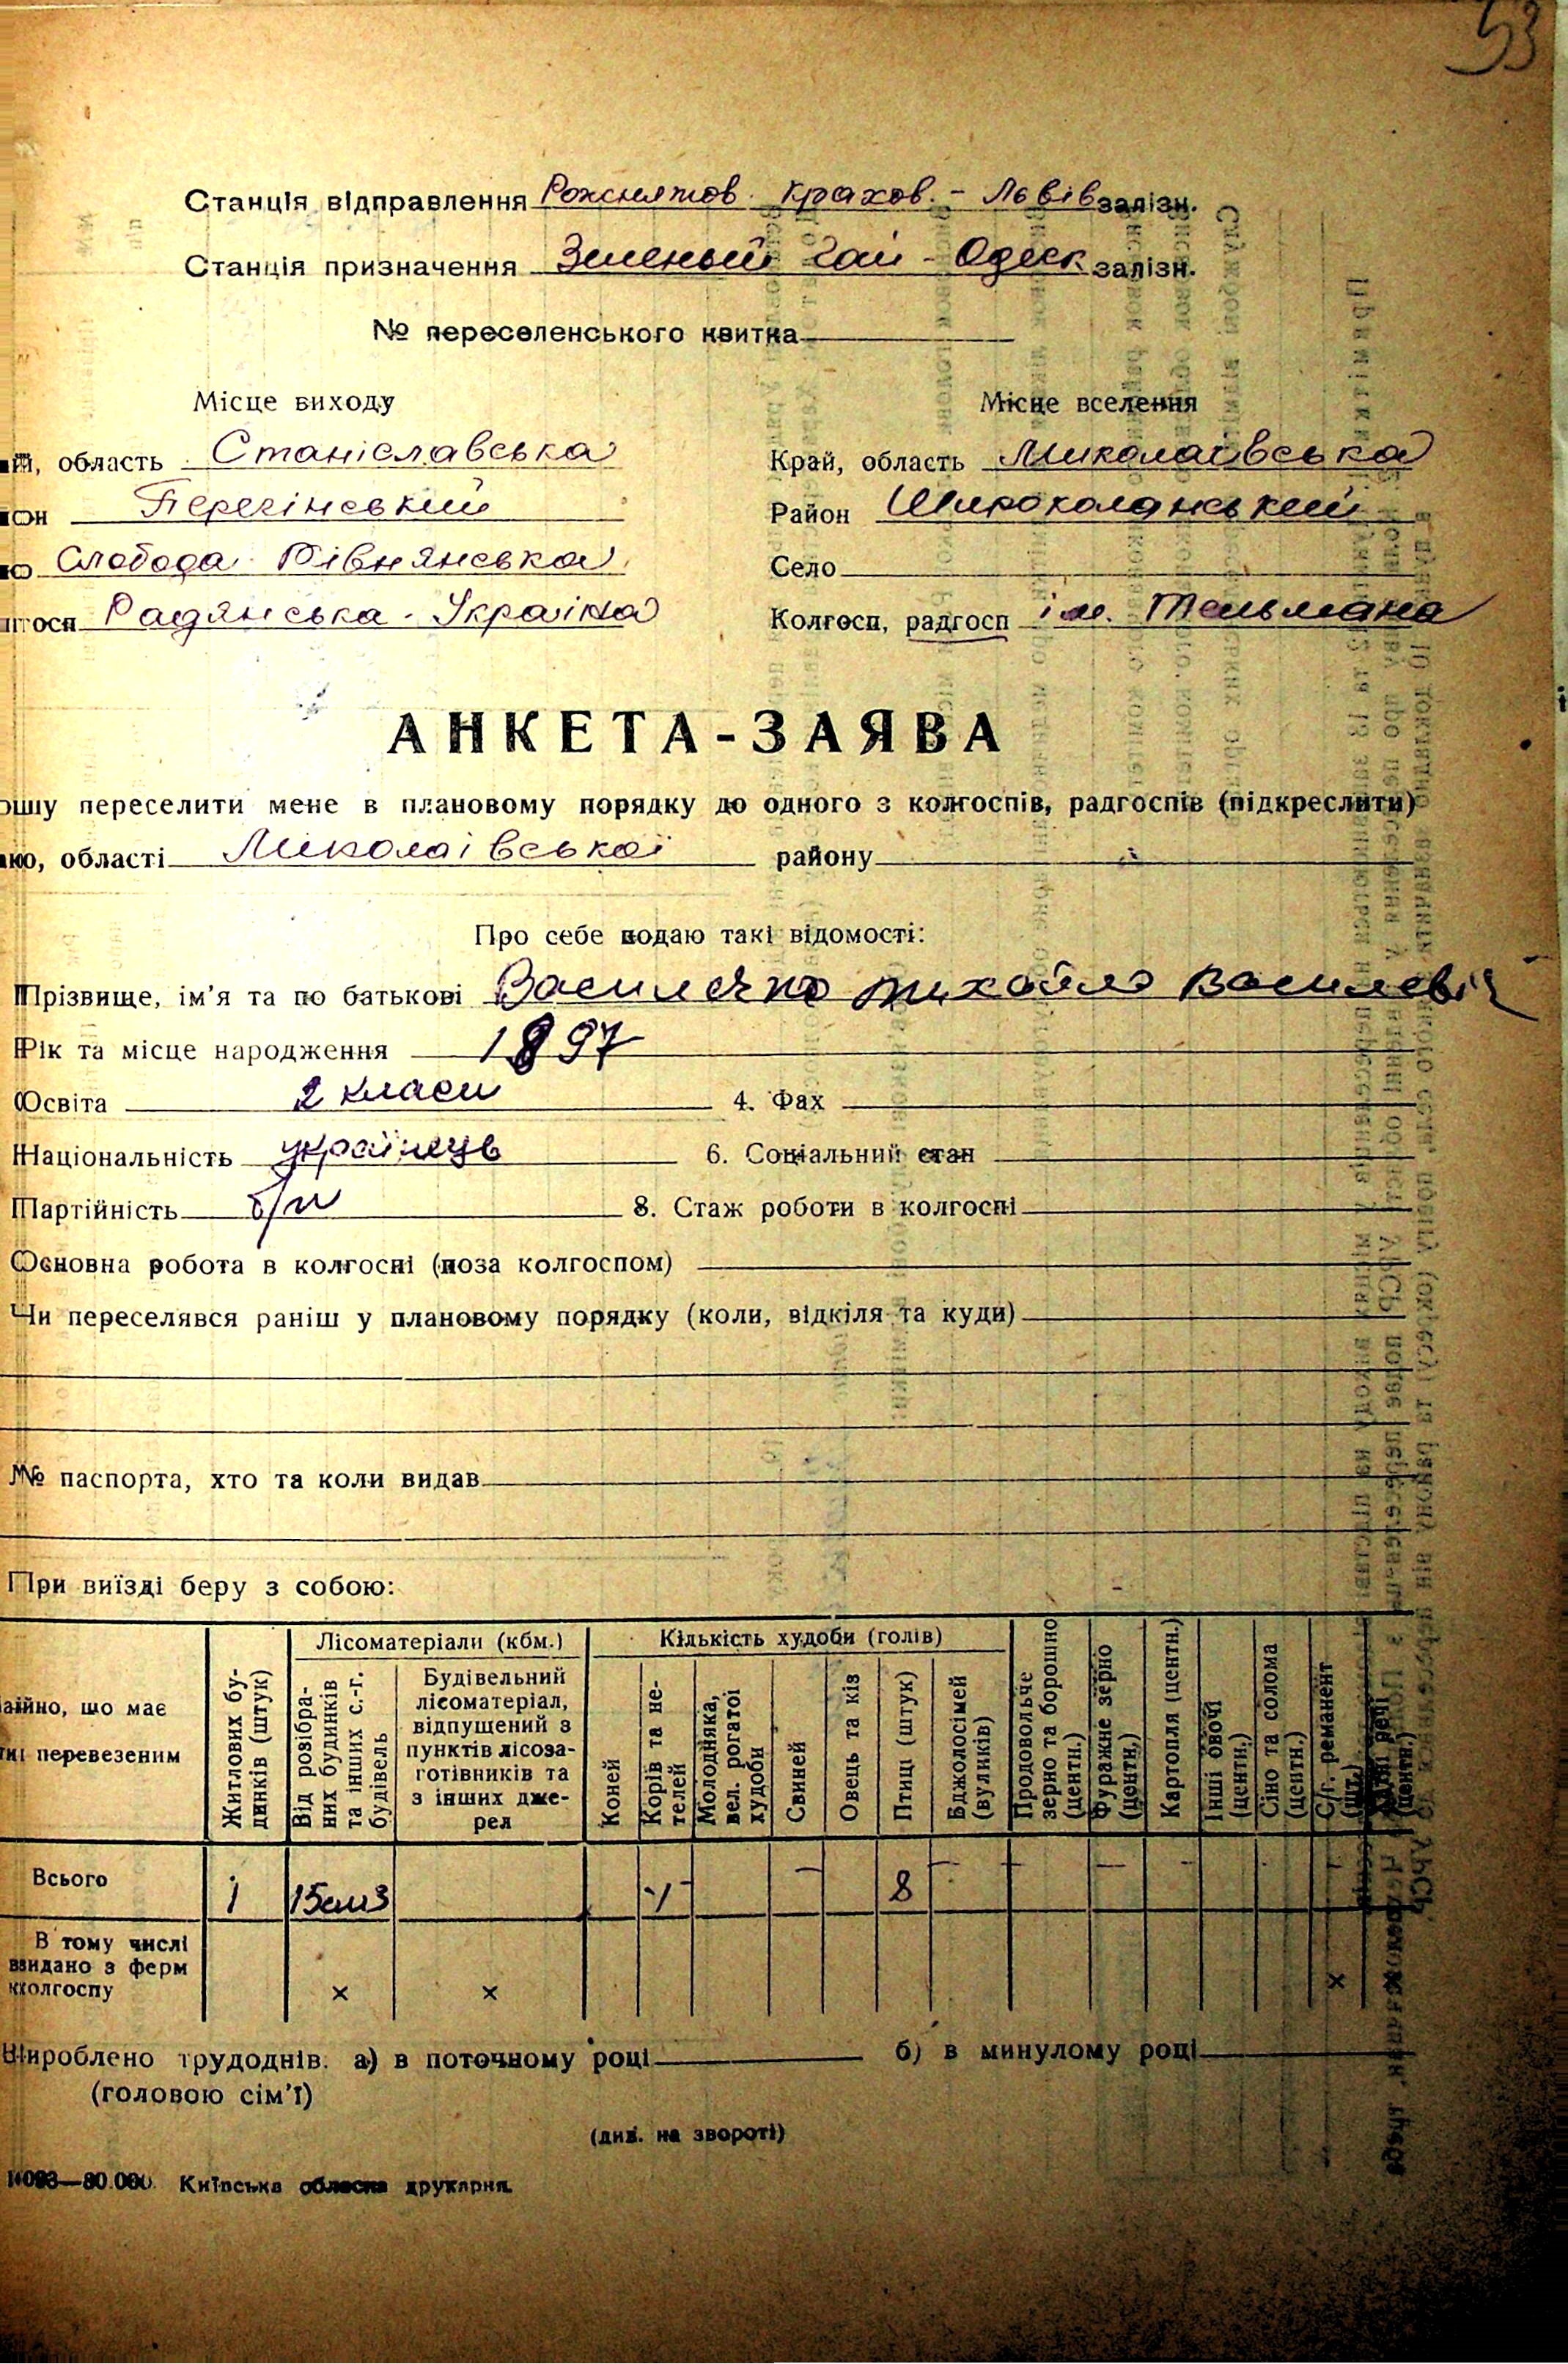 53
Станція відправлення Рожнятов Краков. - Львів залізн.
Станція призначення Зеленый Гай - Одеск залізн.
№ переселенського квитка
Місце виходу
Місце вселення
ай, область Станіславська
Край, область Миколаївська
йон Перегінський
Район Широколанський
ло Слобода Рівнянська
Село
лгосп Радянська Україна
Колгосп, радгосп ім. Тельмана
АНКЕТА-ЗАЯВА
ошу переселити мене в плановому порядку до одного з колгоспів, радгоспів (підкреслити)
аю, області Миколаївської району
Про себе подаю такі відомості:
Прізвище, ім'я та по батькові Михайло Василевіч
Рік та місце народження 1897
Освіта 2 класи 4. Фах
Національність українець 6. Соціальний стан
Партійність б/п 8. Стаж роботи в колгоспі
Основна робота в колгоспі (поза колгоспом)
Чи переселявся раніш у плановому порядку (коли, відкіля та куди)
№ паспорта, хто та коли видав
При виїзді беру з собою:
айно, що має
ти перевезеним
Житлових будинків (штук)
Лісоматеріали (кбм.)
Від розібраних будинків та інших с.-г. будівель
Будівельний лісоматеріал, відпущений з пунктів лісозаготівників та з інших джерел
Кількість худоби (голів)
Коней
Корів та нетелей
Молодняка, вел. рогатої худоби
Свиней
Овець та кіз
Птиці (штук)
Бджолосімей (вуликів)
Продовольче зерно та борошно (центн.)
Фуражне зерно (центн.)
Картопля (центн.)
Інші овочі (центн.)
Сіно та солома (центн.)
С/г. реманент (шт.)
Всього 1 15 8
В тому числі
видано з ферм
колгоспу × × ×
Вироблено трудоднів: а) в поточному році б) в минулому році
(головою сім'ї)
(див. на звороті)
Київська обласна друкарня.